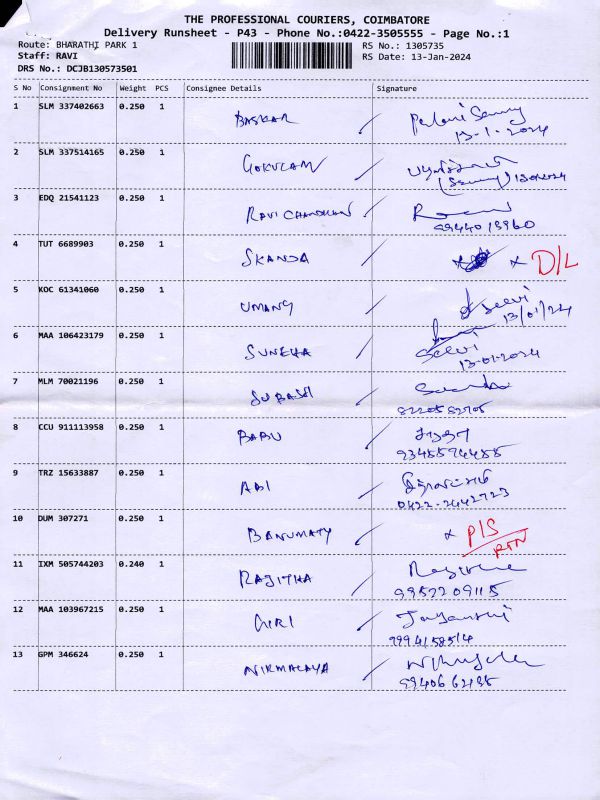 THE PROFESSIONAL COURIERS, COIMBATORE
Delivery Runsheet - P43 - Phone No.:0422-3505555 - Page No.:1
Route: BHARATHI PARK 1
RS No.: 1305735
Staff: RAVI
RS Date: 13-Jan-2024
DRS No.: DCJB130573501
S No Consignment No Weight PCS Consignee Details Signature
1 SLM 337402663 0.250 1 BASKAR
13-1-2024
2 SLM 337514165 0.250 1 GOKULAM
3 EDQ 21541123 0.250 1 RAVI CHANDRAN
9944013960
4 TUT 6689903 0.250 1 SKANDA x D/L
5 KOC 61341060 0.250 1 UMANG Selvi
13/01/24
6 MAA 106423179 0.250 1 SUNEHA Selvi
13-01-2024
7 MLM 70021196 0.250 1 SUBASH
8 CCU 911113958 0.250 1 BABU
9 TRZ 15633887 0.250 1 ABI
0422-2442723
10 DUM 307271 0.250 1 BANUMATY x P/S
RTN
11 IXM 505744203 0.240 1 RAJITHA
9952209115
12 MAA 103967215 0.250 1 GIRI Jayanthi
9994158514
13 GPM 346624 0.250 1 NIRMALAYA
9940662195